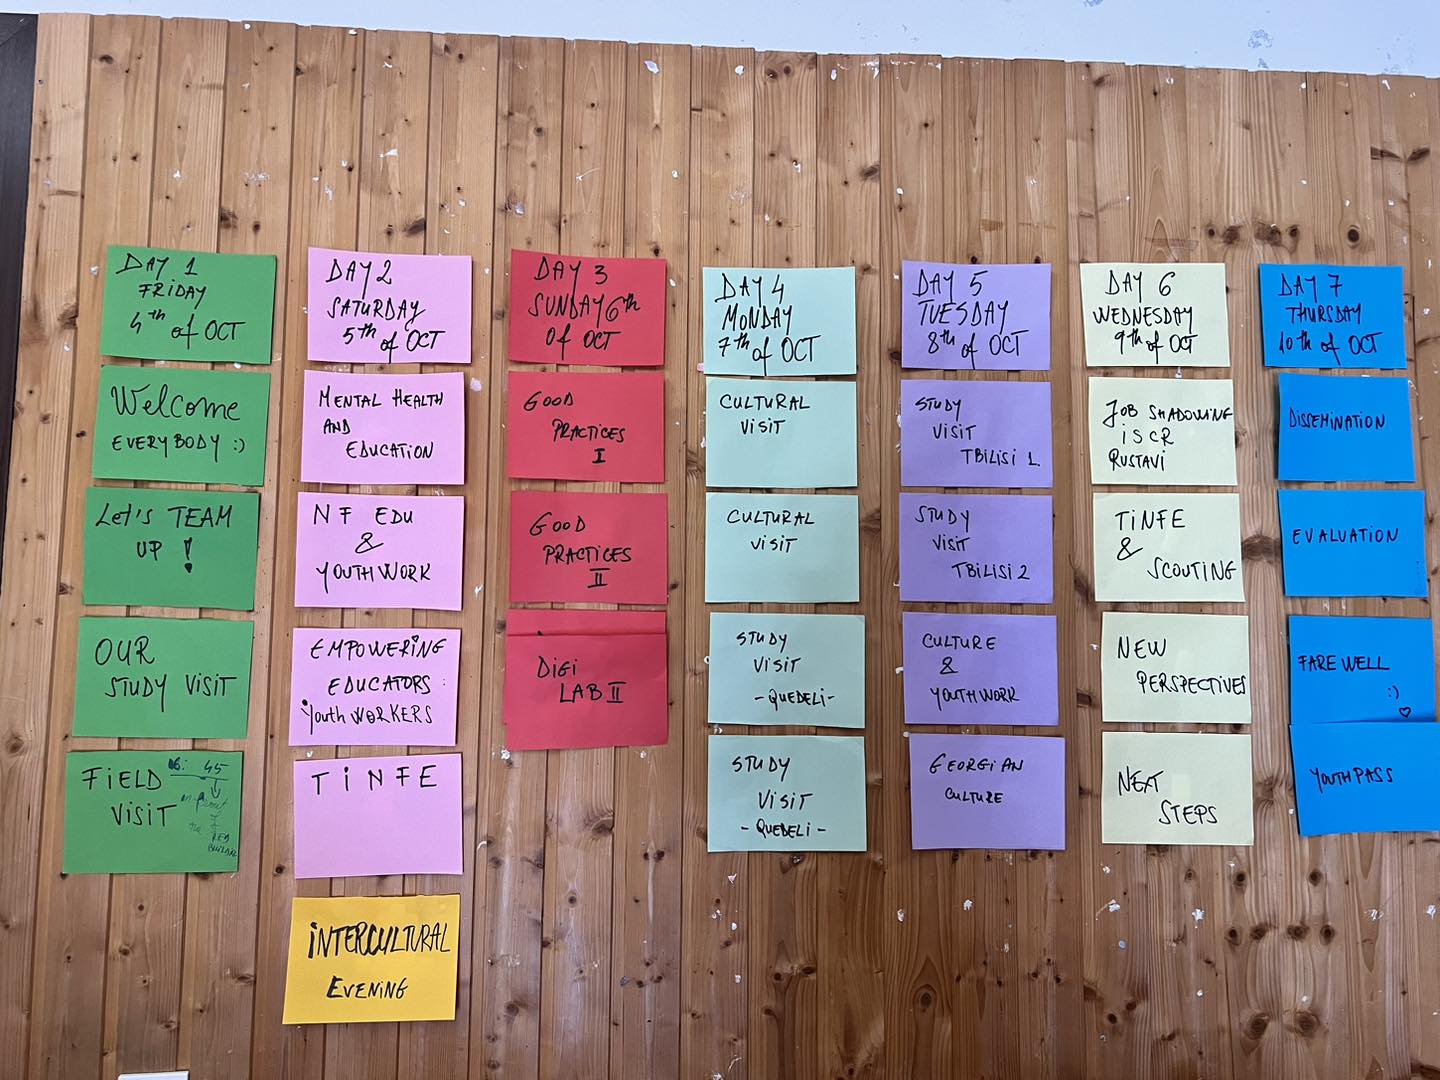 DAY 1
FRIDAY
4th of OCT
Welcome
EVERYBODY :)
Let's TEAM
UP !
OUR
STUDY VISIT
FIELD
VISIT
45
DAY 2
SATURDAY
5th of OCT
MENTAL HEALTH
AND
EDUCATION
NF EDU
&
YOUTH WORK
EMPOWERING
EDUCATORS:
Youth WORKERS
TiNFE
iNTERCULTURAL
EVENING
DAY 3
SUNDAY 6th
Of OCT
GOOD
PRACTICES
I
GOOD
PRACTICES
II
DiGi
LAB II
DAY 4
MONDAY
7th of OCT
CULTURAL
VISIT
CULTURAL
VISIT
STUDY
VISIT
-QUEDELI-
STUDY
VISIT
-QUEDELI-
DAY 5
TUESDAY
8th of OCT
STUDY
VISIT
TBILISI 1
STUDY
VISIT
TBILISI 2
CULTURE
&
YOUTH WORK
GEORGIAN
CULTURE
DAY 6
WEDNESDAY
9th of OCT
JOB SHADOWING
iSCR
RUSTAVI
TiNFE
&
SCOUTING
NEW
PERSPECTIVES
NEXT
STEPS
DAY 7
THURSDAY
10th of OCT
DISSEMINATION
EVALUATION
FAREWELL
:)
♡
YOUTHPASS